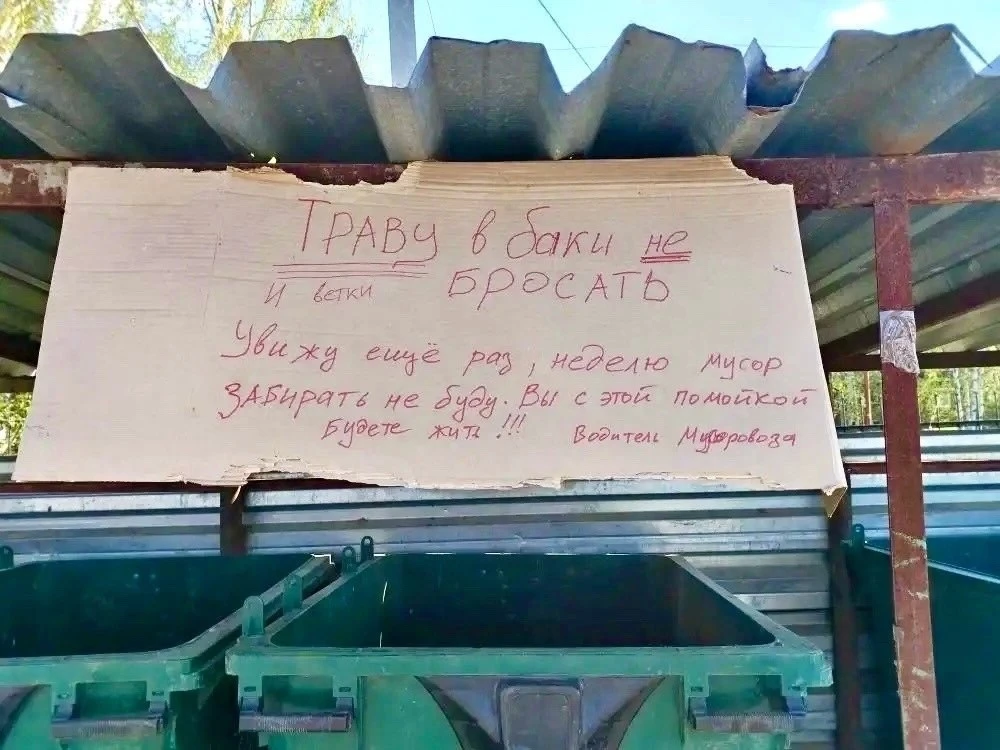 ТРАВУ в баки не
и ветки БРОСАТЬ
Увижу ещё раз, неделю мусор
ЗАБирать не буду. Вы с этой помойкой
Будете жить!!! Водитель Мусоровоза